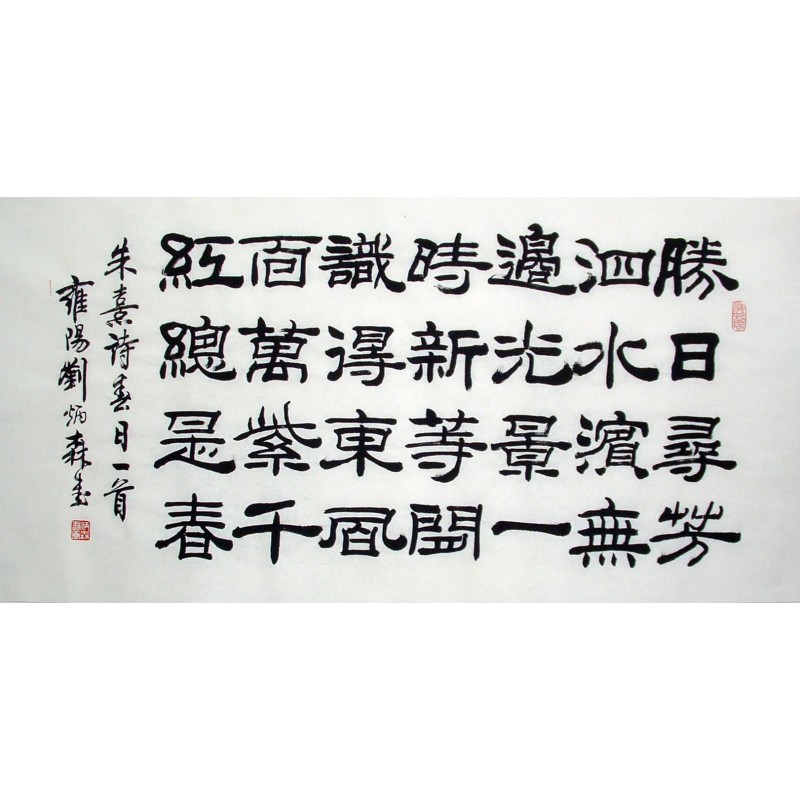 勝日尋芳
泗水濱無
邊光景一
時新等閒
識得東風
面萬紫千
紅總是春
朱熹詩春日一首
雍陽劉炳森書